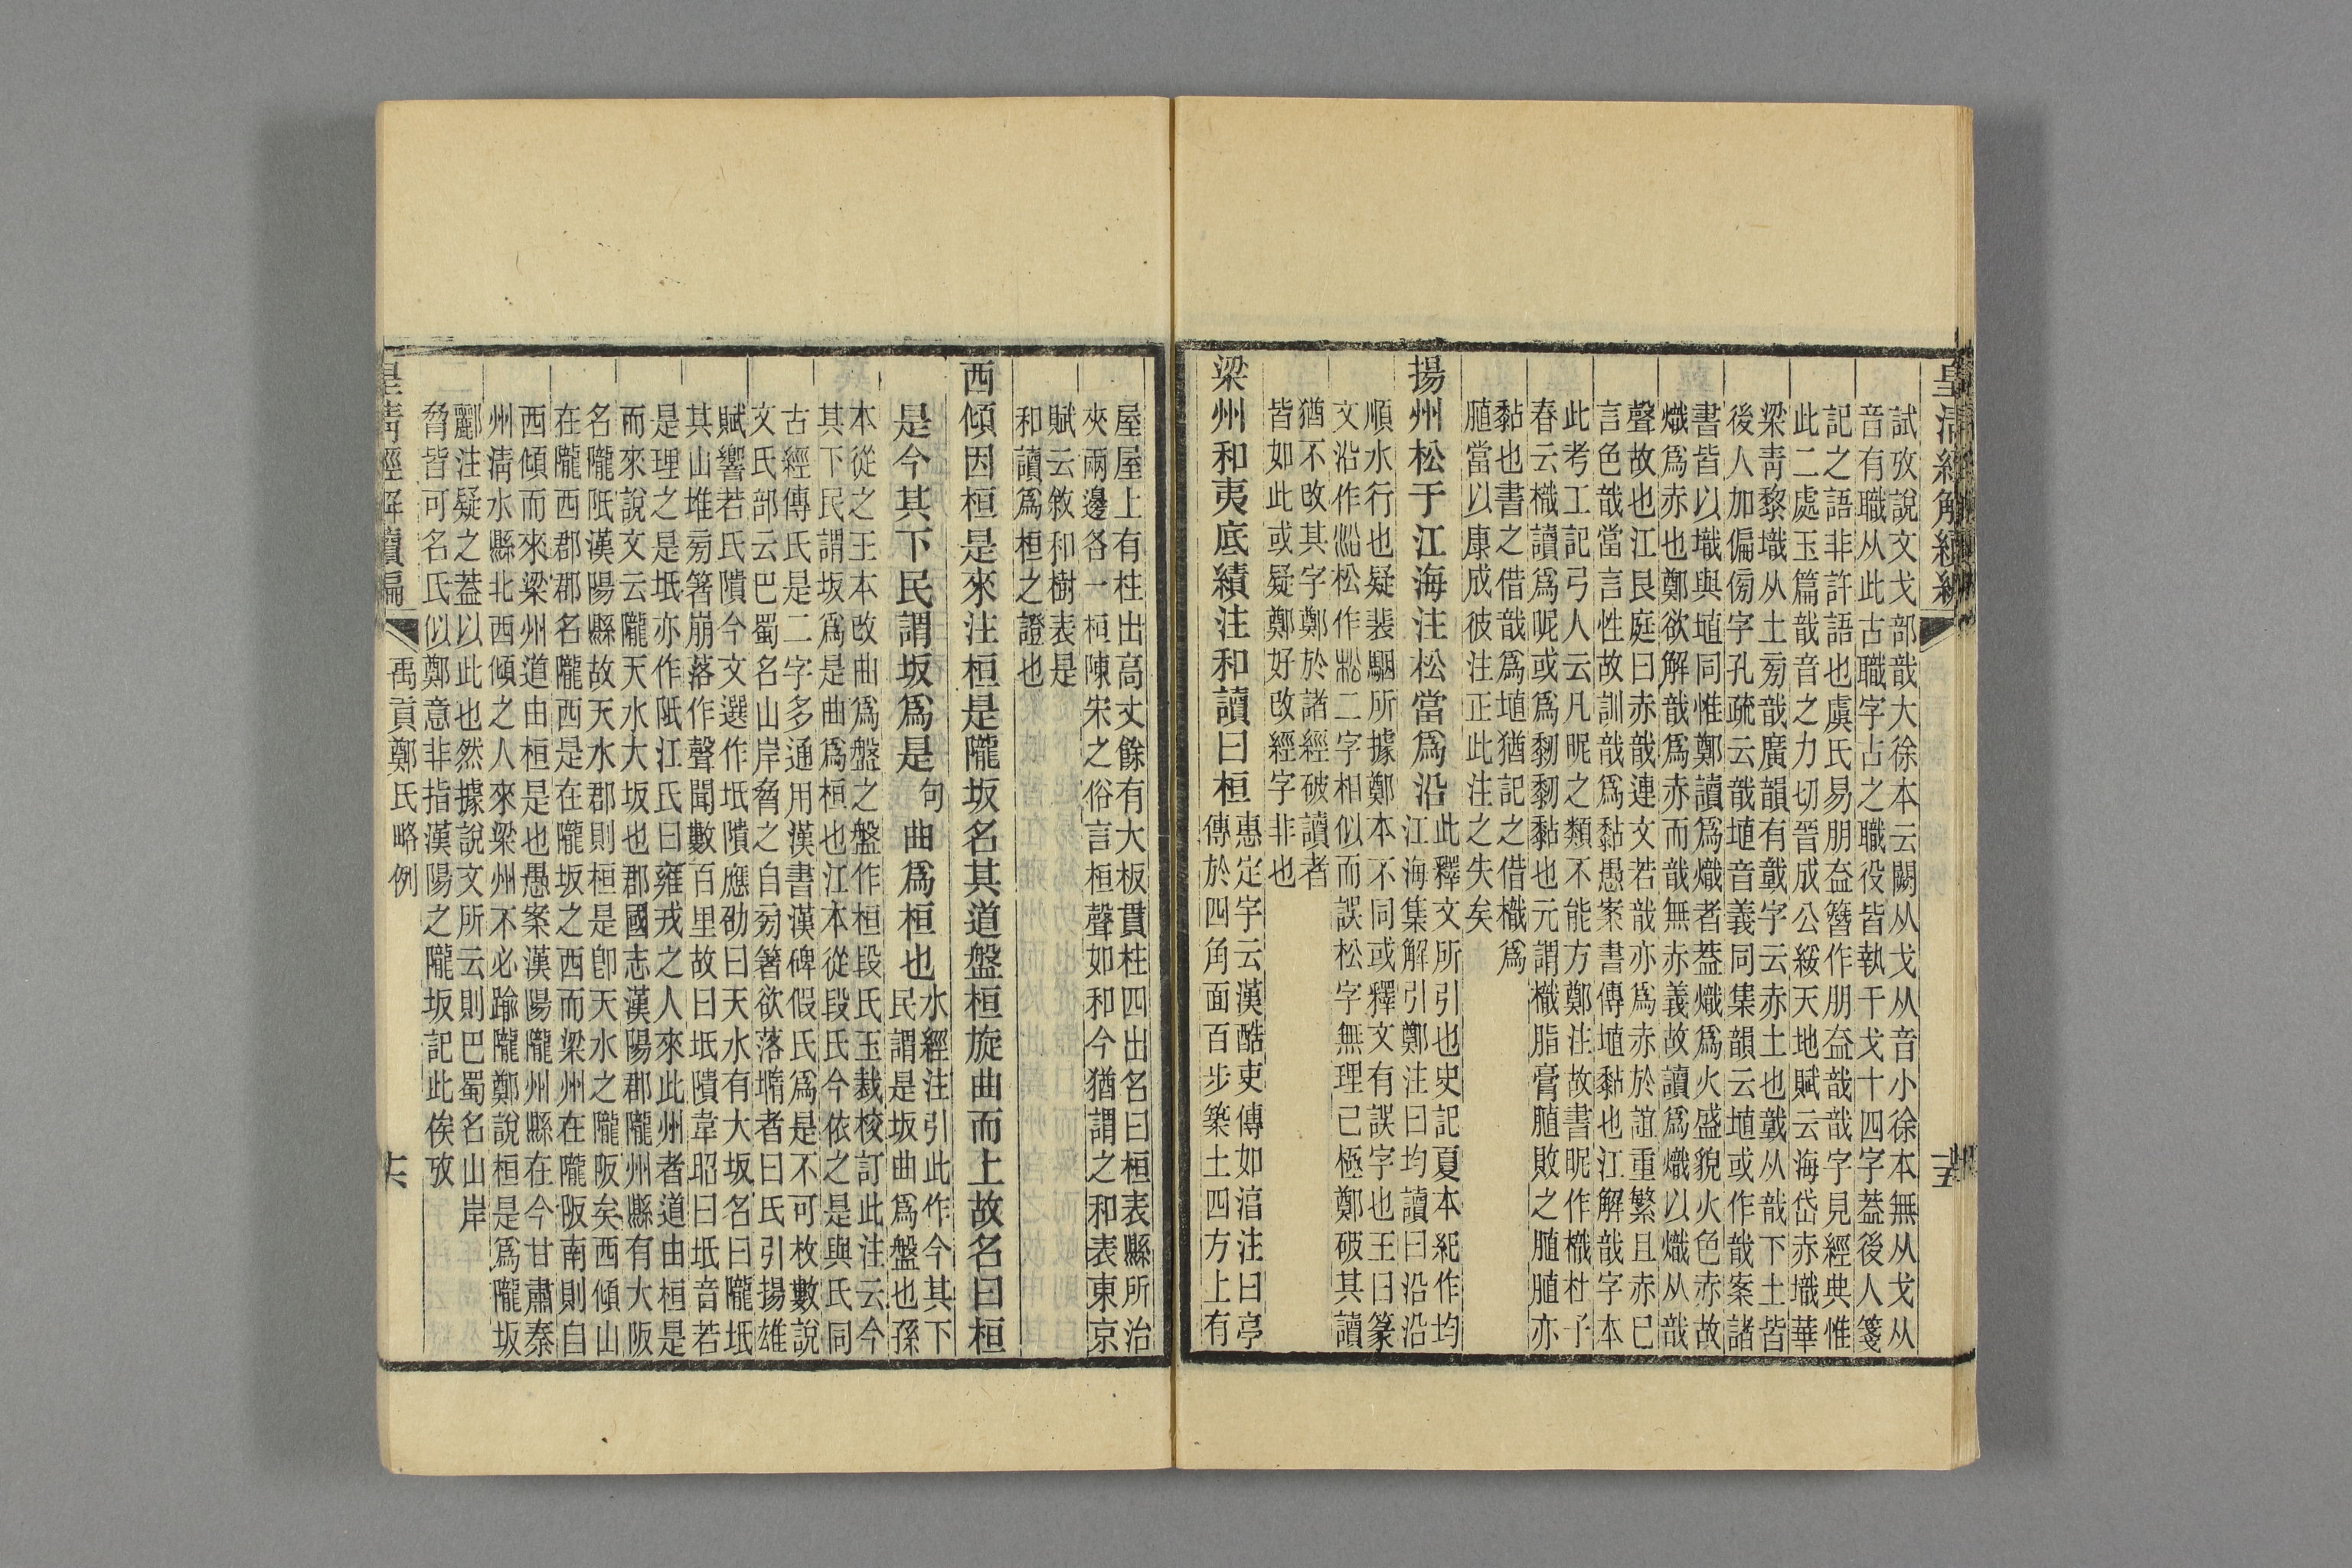 皇清經解續編
試攷說文戈部戠大徐本云闕从戈从音小徐本無从戈从
音有職从此古職字占之職役皆執干戈十四字蓋後人箋
記之語非許語也虞氏易朋盍簪作朋盍戠戠字見經典惟
此二處玉篇戠音之力切晉成公綏天地賦云海岱赤墌華
梁青黎墌从土旁戠廣韻有䵑字云赤土也䵑从戠下土皆
後人加偏傍字孔疏云戠埴音義同集韻云埴或作戠案諸
書皆以墌與埴同惟鄭讀爲熾者蓋熾爲火盛貌火色赤故
熾爲赤也鄭欲解戠爲赤而戠無赤義故讀爲熾以熾从戠
聲故也江艮庭曰赤戠連文若戠亦爲赤於誼重繁且赤已
言色戠當言性故訓戠爲黏愚案書傳埴黏也江解戠字本
此考工記弓人云凡昵之類不能方鄭注故書昵作樴杜子
春云樴讀爲昵或爲䵑䵑黏也元謂樴脂膏䐈敗之䐈䐈亦
黏也書之借戠爲埴猶記之借樴爲
䐈當以康成彼注正此注之失矣
揚州松于江海注松當爲沿
此釋文所引也史記夏本紀作均
江海集解引鄭注曰均讀曰沿沿
順水行也疑裴駰所據鄭本不同或釋文有誤字也王曰篆
文沿作㳂松作枀二字相似而誤松字無理已極鄭破其讀
猶不改其字鄭於諸經破讀者
皆如此或疑鄭好改經字非也
梁州和夷底績注和讀曰桓
惠定宇云漢酷吏傳如淳注曰亭
傳於四角面百步築土四方上有
十五
屋屋上有柱出高丈餘有大板貫柱四出名曰桓表縣所治
夾兩邊各一桓陳宋之俗言桓聲如和今猶謂之和表東京
賦云敘和樹表是
和讀爲桓之證也
西傾因桓是來注桓是隴坂名其道盤桓旋曲而上故名曰桓
是今其下民謂坂爲是句曲爲桓也
水經注引此作今其下
民謂是坂曲爲盤也孫
本從之王本改曲爲盤之盤作桓段氏玉裁校訂此注云今
其下民謂坂爲是曲爲桓也江本從段氏今依之是與氏同
古經傳氏是二字多通用漢書漢碑假氏爲是不可枚數說
文氏部云巴蜀名山岸脅之自旁箸欲落墮者曰氏引揚雄
賦響若氏隤今文選作坻隤應劭曰天水有大坂名曰隴坻
其山堆旁箸崩落作聲聞數百里故曰坻隤韋昭曰坻音若
是理之是坻亦作阺江氏曰雍戎之人來此州者道由桓是
而來說文云隴天水大坂也郡國志漢陽郡隴州縣有大阪
名隴阺漢陽縣故天水郡則桓是卽天水之隴阪矣西傾山
在隴西郡郡名隴西是在隴坂之西而梁州在隴阪南則自
西傾而來梁州道由桓是也愚案漢陽隴州縣在今甘肅秦
州清水縣北西傾之人來梁州不必踰隴鄭說桓是爲隴坂
酈注疑之蓋以此也然據說文所云則巴蜀名山岸
脅皆可名氏似鄭意非指漢陽之隴坂記此俟攷
皇清經解續編
禹貢鄭氏略例
十六